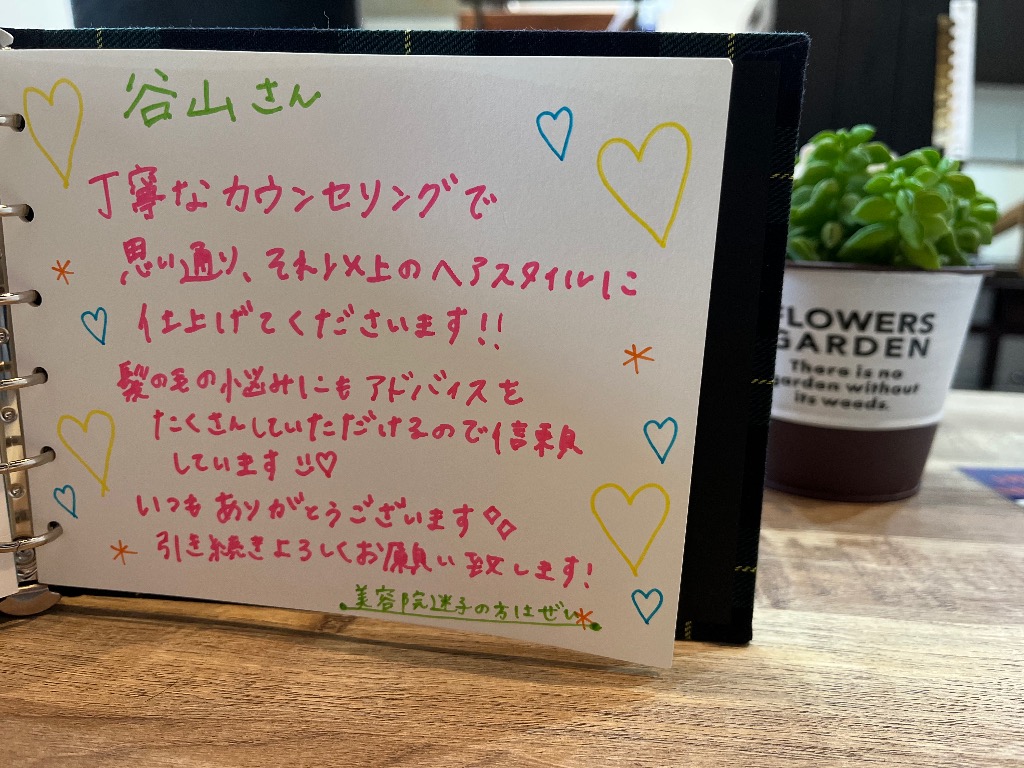 谷山さん
丁寧なカウンセリングで
思い通り、それ以上のヘアスタイルに
仕上げてくださいます!!
髪の毛の悩みにもアドバイスを
たくさんしていただけるので信頼
しています
いつもありがとうございます
引き続きよろしくお願い致します!
美容院迷子の方はぜひ
FLOWERS
GARDEN
There is no
garden without
its weeds.